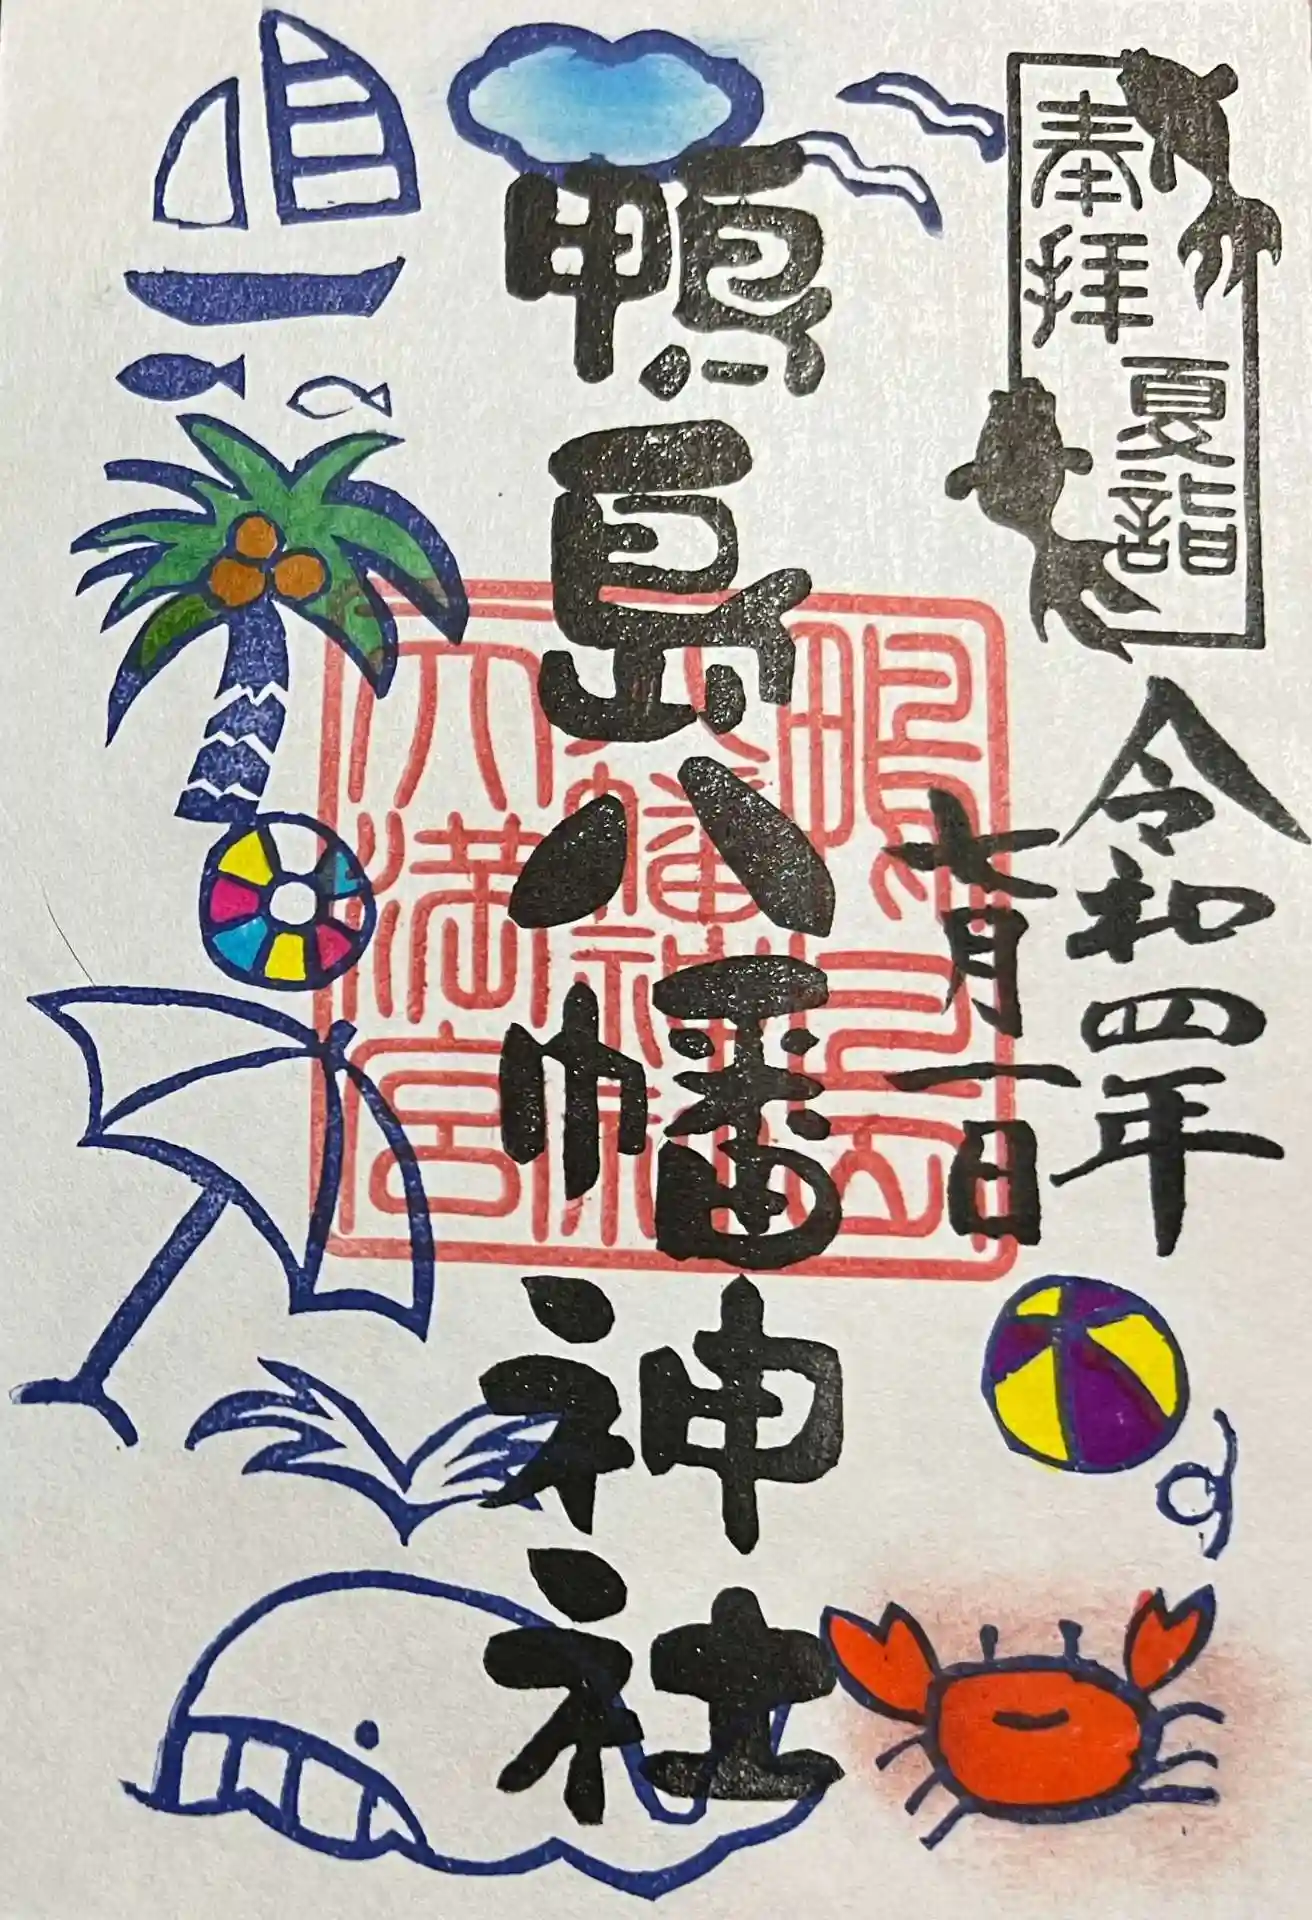 奉拝
夏詣
令和四年
七月一日
鴨島八幡神社
鴨島呉島
八幡神社
天満宮